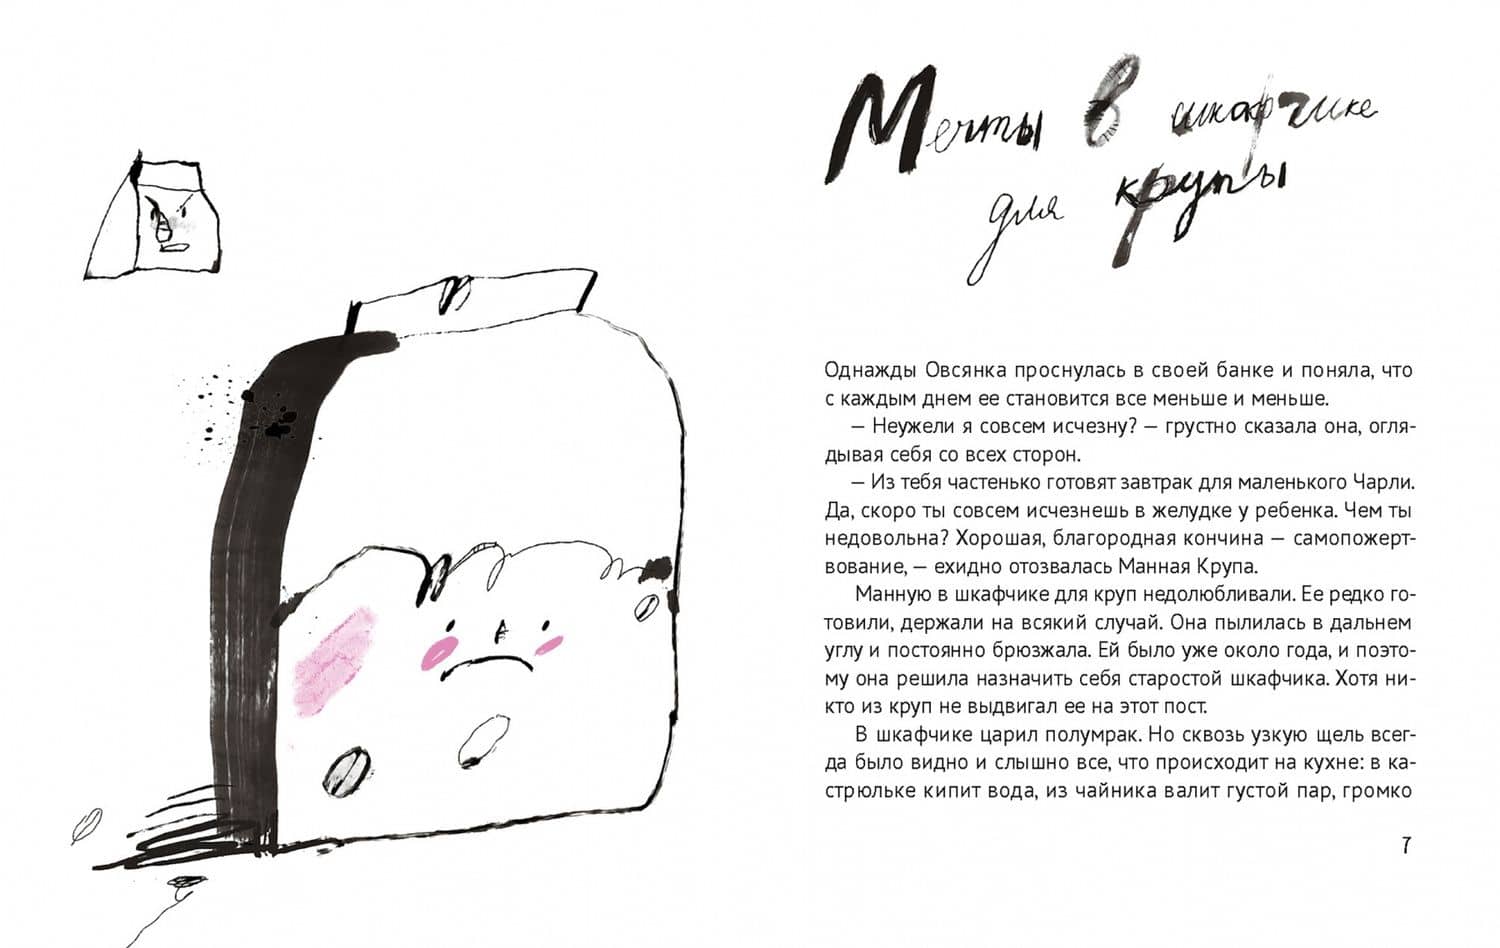 Мечты в шкафчике
для крупы
Однажды Овсянка проснулась в своей банке и поняла, что
с каждым днем ее становится все меньше и меньше.
— Неужели я совсем исчезну? — грустно сказала она, огля-
дывая себя со всех сторон.
— Из тебя частенько готовят завтрак для маленького Чарли.
Да, скоро ты совсем исчезнешь в желудке у ребенка. Чем ты
недовольна? Хорошая, благородная кончина — самопожерт-
вование, — ехидно отозвалась Манная Крупа.
Манную в шкафчике для круп недолюбливали. Ее редко го-
товили, держали на всякий случай. Она пылилась в дальнем
углу и постоянно брюзжала. Ей было уже около года, и поэто-
му она решила назначить себя старостой шкафчика. Хотя ни-
кто из круп не выдвигал ее на этот пост.
В шкафчике царил полумрак. Но сквозь узкую щель всег-
да было видно и слышно все, что происходит на кухне: в ка-
стрюльке кипит вода, из чайника валит густой пар, громко
7